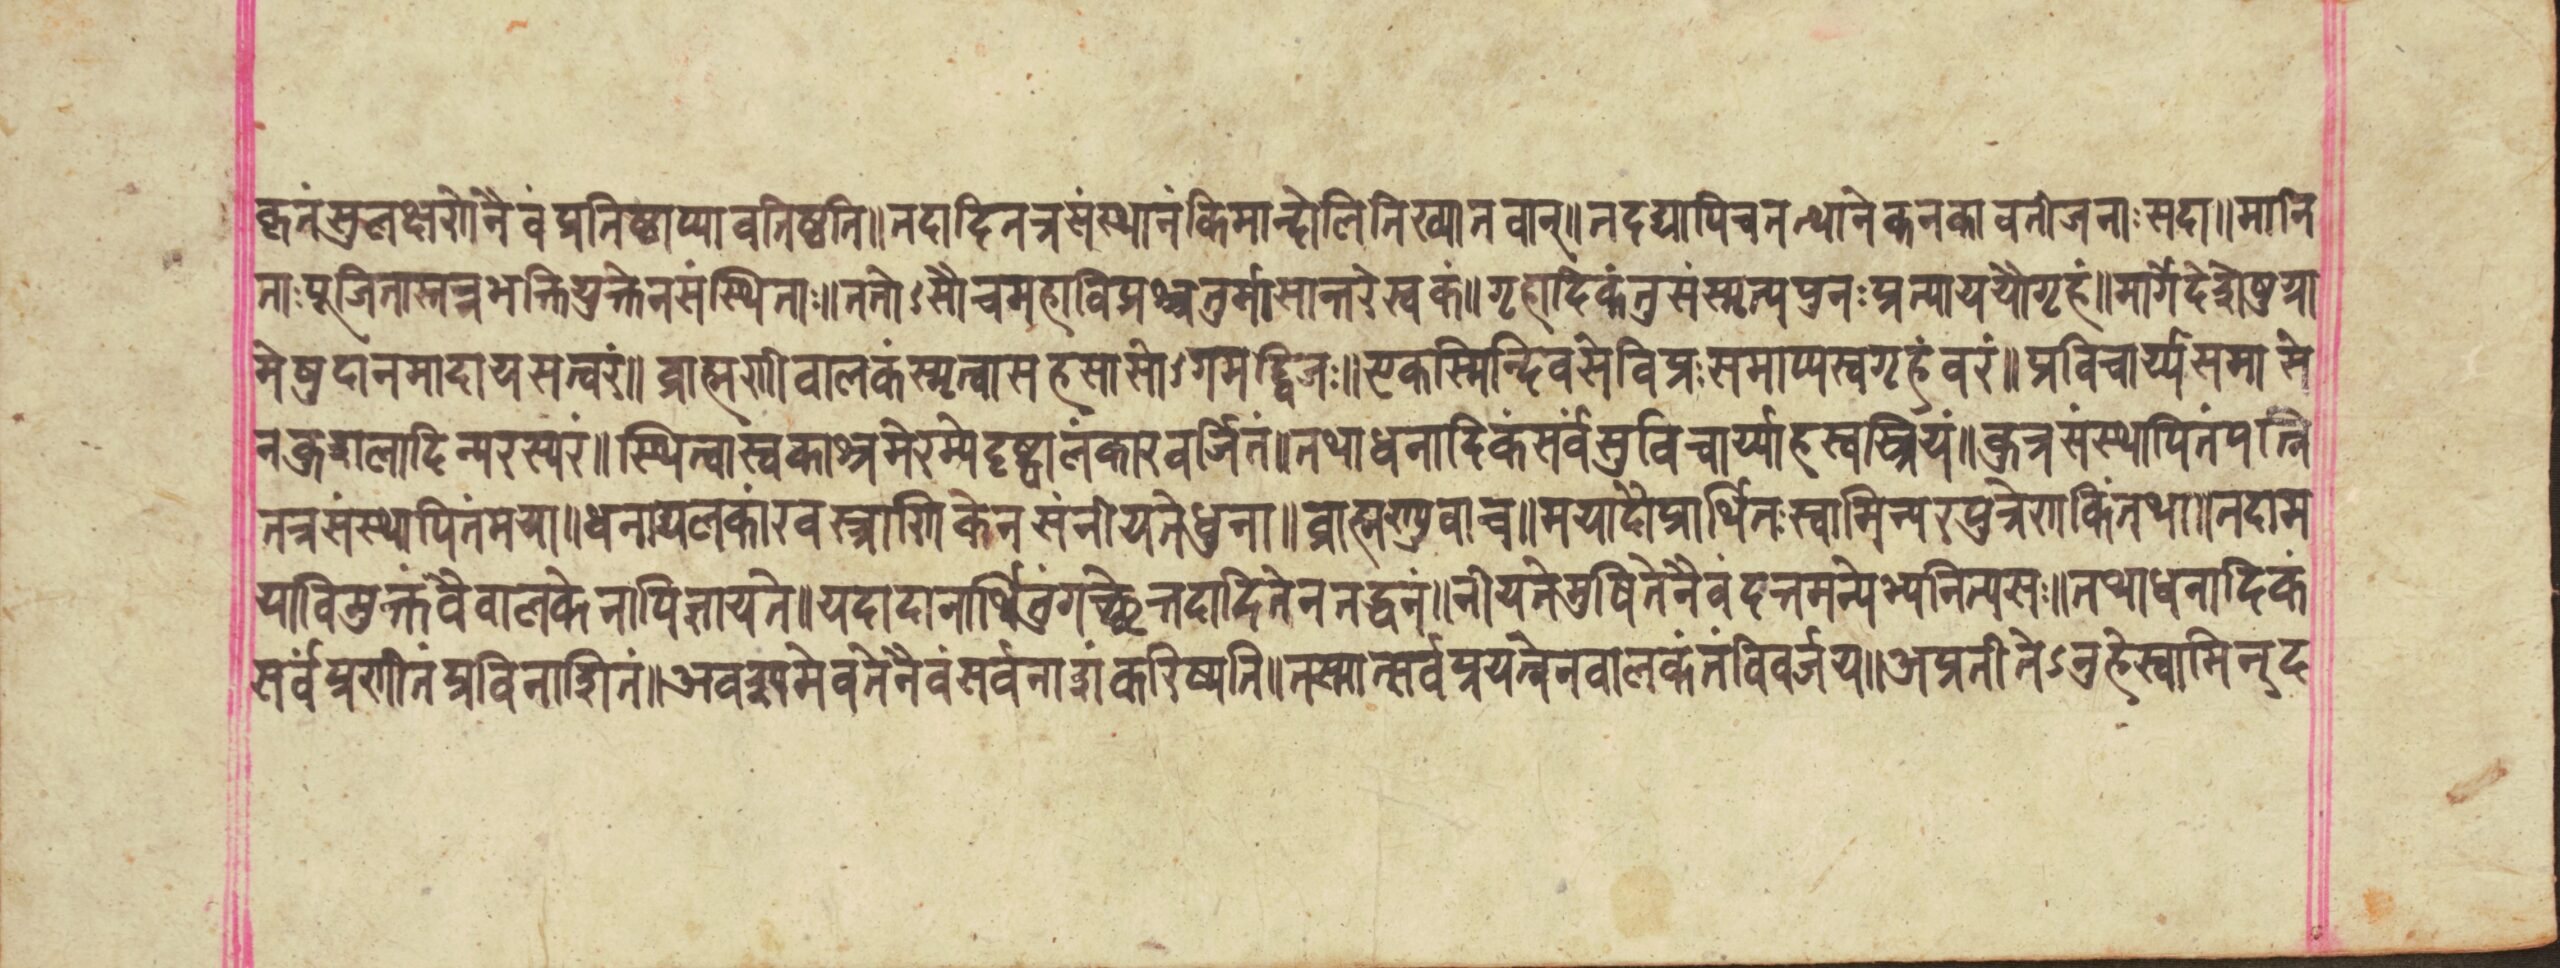 कृतं सुलक्षणेनैवं प्रतिष्ठाप्यावतिष्ठति॥ तदादि तत्र संस्थानं किमान्दोलिति ख्यातवान्॥ तदद्यापि च तत्थाने कनकावती जनाः सदा॥ मानि
ताः पूजितास्तत्र भक्तियुक्तेन संस्थिताः॥ ततोऽसौ च महाविप्रश्चतुर्मासान्तरे स्वकं॥ गृहादिकं तु संस्मृत्य पुनः प्रत्याययौ गृहं॥ मार्गे देशेषु ग्रा
मेषु दानमादाय सत्वरं॥ ब्राह्मणी वालकं स्मृत्वा सहसा सोऽगमद्द्विजः॥ एकस्मिन्दिवसे विप्रः समाप्य स्वगृहं वरं॥ प्रविचार्य्य समासे
न कुशलादि न्परस्परं॥ स्थित्वा स्वकाश्रमे रम्ये दृष्ट्वालंकारवर्जितं॥ तथा धनादिकं सर्वं सुविचार्य्याह स्वस्त्रियं॥ कुत्र संस्थापितं पत्नि
तत्र संस्थापितं मया॥ धनायलकांरवस्त्राणि केन संनीयतेधुना॥ ब्राह्मण्युवाच॥ मयादौ प्रार्थितः स्वामिन्परपुत्रेण किं तथा॥ तदा म
या विमुक्तं वै वालकेनापि ज्ञायते॥ यदा दानार्थितुं गच्छेत्तदादि तेन तद्धनं॥ नीयते मुषितेनैवं दत्तमन्येभ्य नित्यसः॥ तथा धनादिकं
सर्वं प्रणीतं प्रविनाशितं॥ अवश्यमेव तेनैवं सर्वनाशं करिष्यति॥ तस्मात्सर्वप्रयत्नेन वालकं तं विवर्जय॥ अप्रतीतेऽनुहे स्वामिन् द